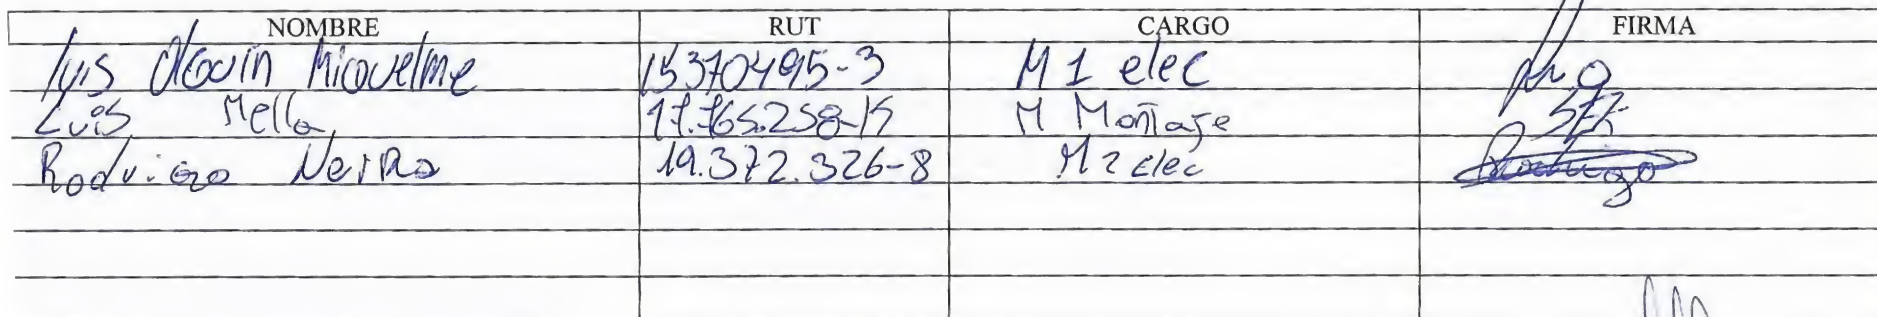 NOMBRE RUT CARGO FIRMA
Luis Riquelme 15370495-3 M 1 elec
Luis Mella 17.765.258-K M Montaje
Rodrigo Neira 19.372.326-8 M 2 elec Rodrigo